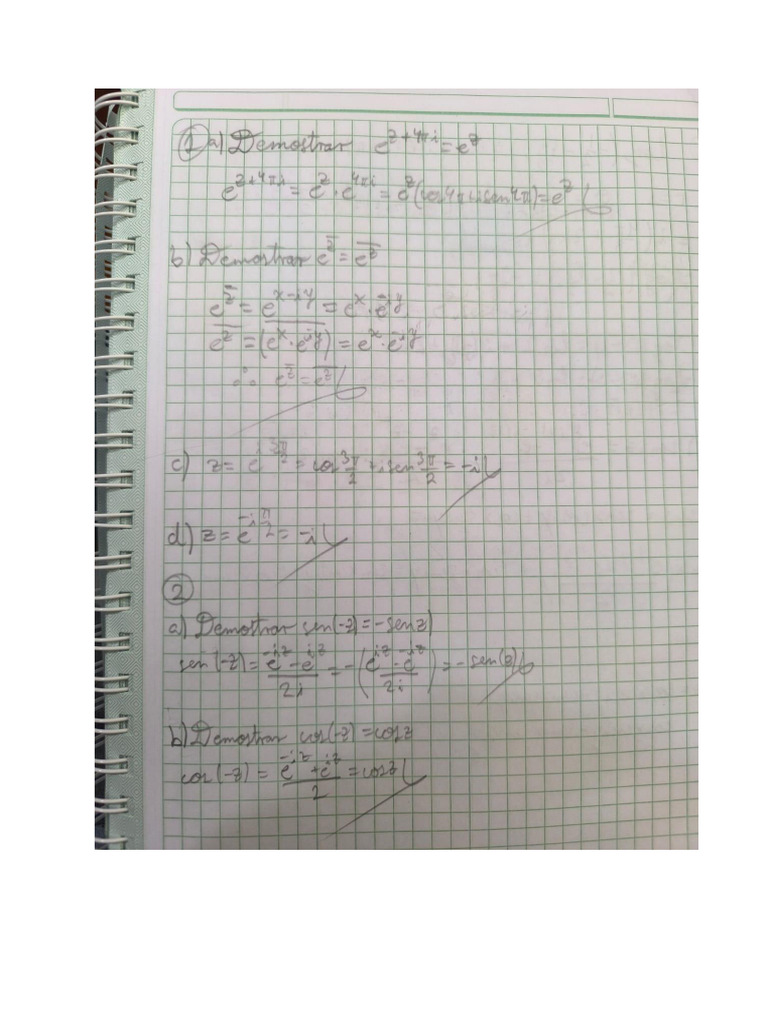 ① a) Demostrar e^{z+4πi} = e^z
e^{z+4πi} = e^z · e^{4πi} = e^z (cos4π+isen4π) = e^z
b) Demostrar e^{z̅} = \overline{e^z}
e^{z̅} = e^{x-iy} = e^x · e^{-iy}
\overline{e^z} = \overline{(e^x · e^{iy})} = e^x · e^{-iy}
∴ e^{z̅} = \overline{e^z}
c) z = e^{i3π/2} = cos 3π/2 + isen 3π/2 = -i
d) z = e^{-iπ/2} = -i
②
a) Demostrar sen(-z) = -senz
sen(-z) = (e^{-iz} - e^{iz})/2i = -((e^{iz} - e^{-iz})/2i) = -sen(z)
b) Demostrar cos(-z) = cosz
cos(-z) = (e^{-iz} + e^{iz})/2 = cosz